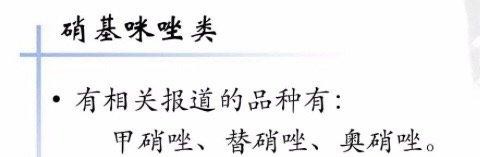 硝基咪唑类
• 有相关报道的品种有：
甲硝唑、替硝唑、奥硝唑。